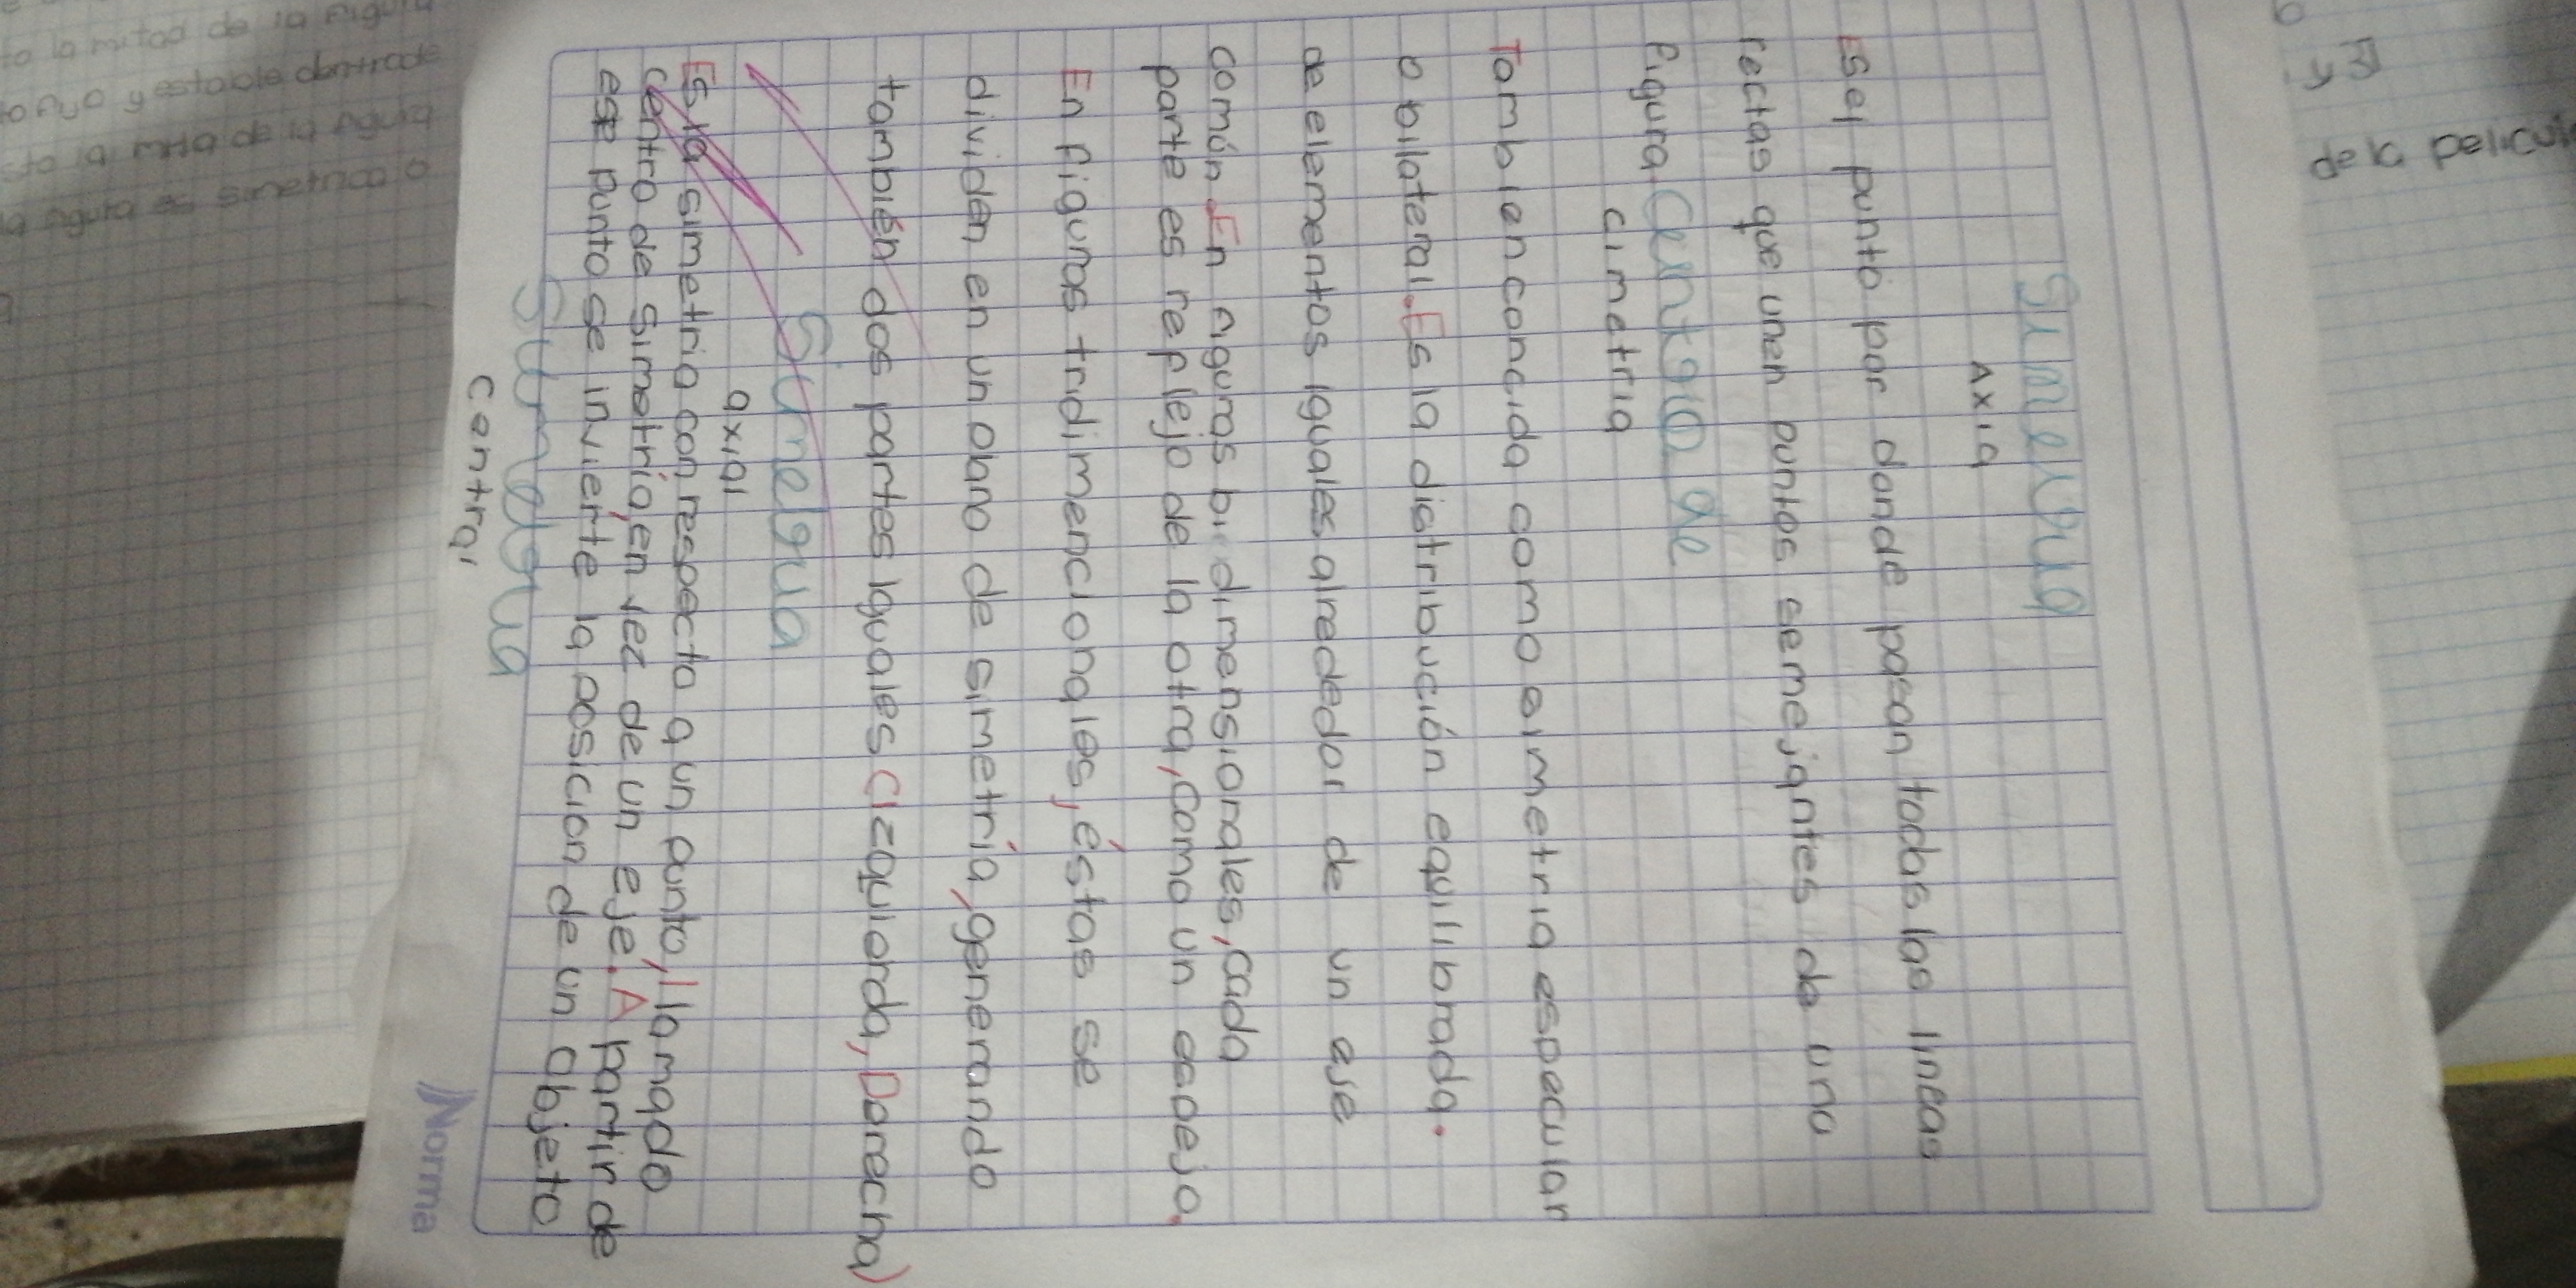 de la pelicul
Simetria
Axia
Es el punto por donde pasan todas las lineas
rectas que unen puntos semejantes de una
figura. Centgia de
cimetria
Tambien concida como simetria especular
o bilateral. Es la distribución equilibrada.
de elementos iguales alrededor de un eje
común. En figuras bidimensionales, cada
parte es reflejo de la otra, como un espejo.
En figuras tridimencionales, éstas se
dividen en un plano de simetría, generando
también dos partes iguales (izquierda, Derecha)
Simetria
axial
Es la simetria con respecto a un punto, llamado
centro de simetría, en vez de un eje. A partir de
ese punto se invierte la posicion de un objeto
Simetria
Central
Norma
to la mitad de la figura
y estable dentrode
la de la figura
la figura es simetrica o